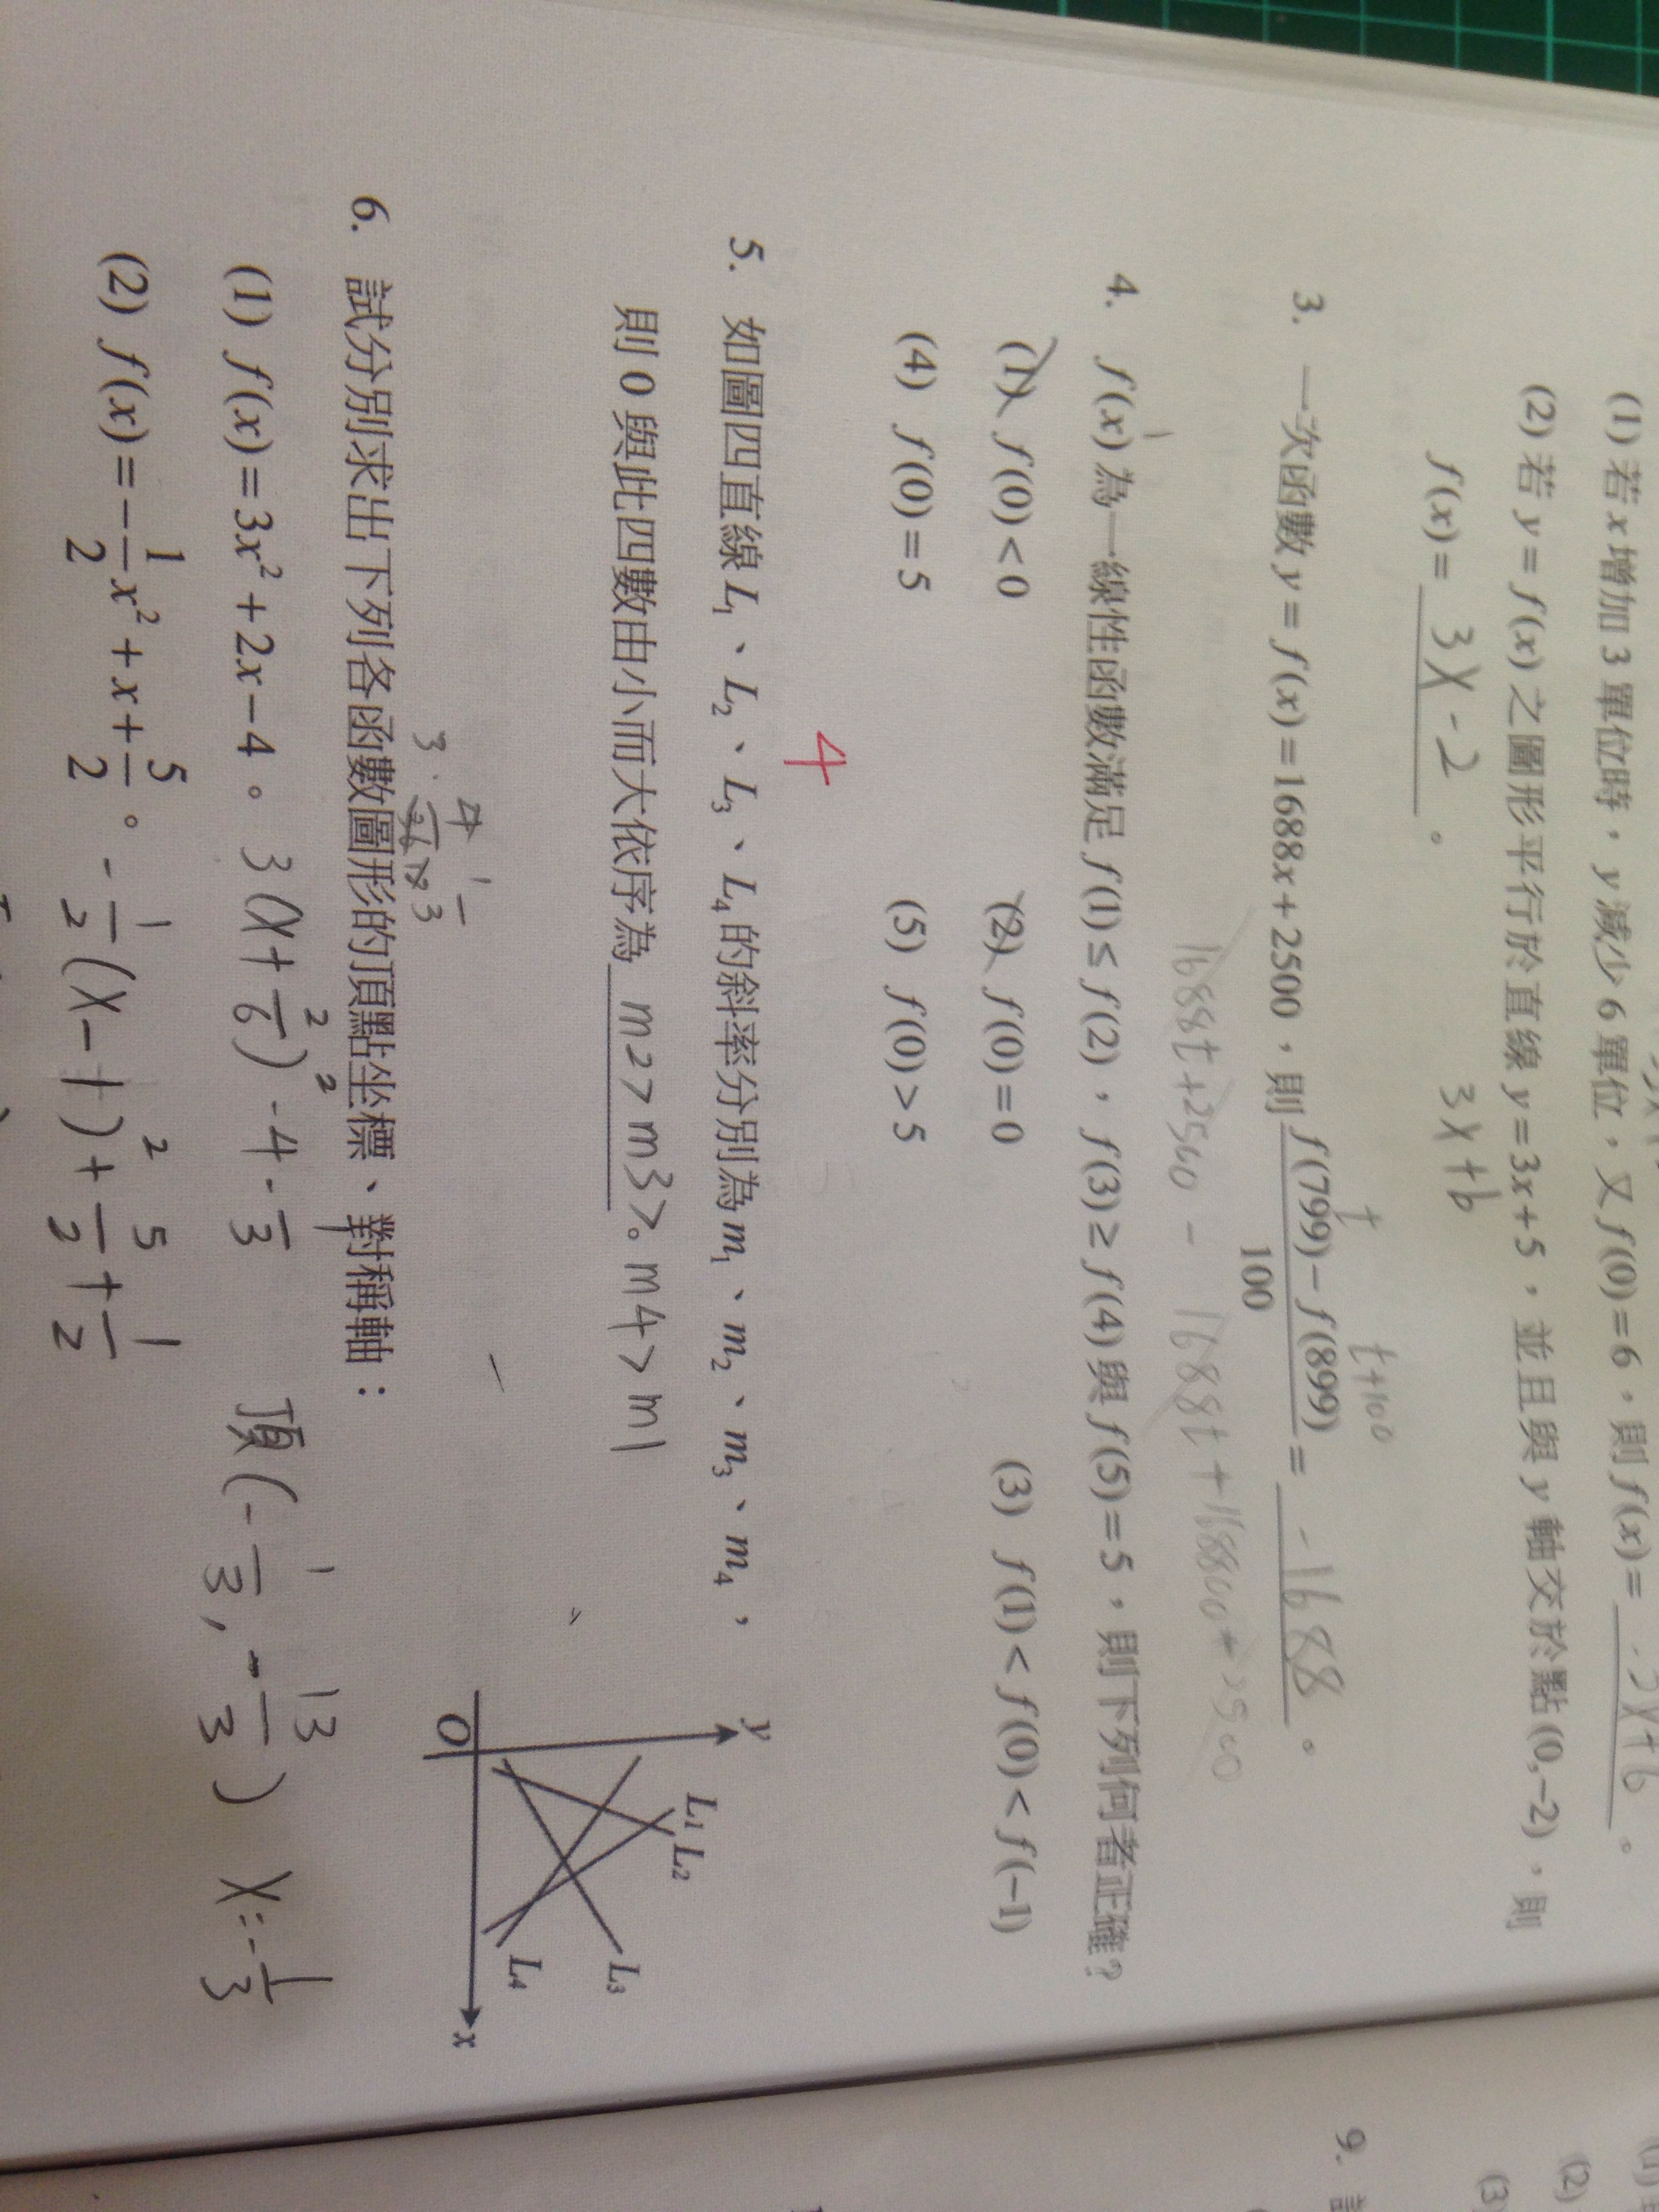 (1) 若 x 增加 3 單位時，y 減少 6 單位，又 f(0)=6，則 f(x)= -2x+6 。
(2) 若 y=f(x) 之圖形平行於直線 y=3x+5，並且與 y 軸交於點 (0,-2)，則
3x+b
f(x)= 3x-2 。
t t+100
3. 一次函數 y=f(x)=1688x+2500，則 f(799)-f(899) / 100 = -1688 。
1688t+2500 - 1688t+168800+2500
4. f(x) 為一線性函數滿足 f(1)≤f(2)，f(3)≥f(4) 與 f(5)=5，則下列何者正確？
(1) f(0)<0 (2) f(0)=0 (3) f(1)<f(0)<f(-1)
(4) f(0)=5 (5) f(0)>5
4
5. 如圖四直線 L₁、L₂、L₃、L₄ 的斜率分別為 m₁、m₂、m₃、m₄，
則 0 與此四數由小而大依序為 m2>m3>。m4>m1
y
L₁
L₂
L₃
L₄
O
x
6. 試分別求出下列各函數圖形的頂點坐標、對稱軸：
(1) f(x)=3x²+2x-4。 3(x+2/6)²-4-1/3 頂(-1/3, -13/3) x=-1/3
(2) f(x)=-1/2x²+x+5/2。 -1/2(x-1)²+5/2+1/2
9.
(2)
(3)